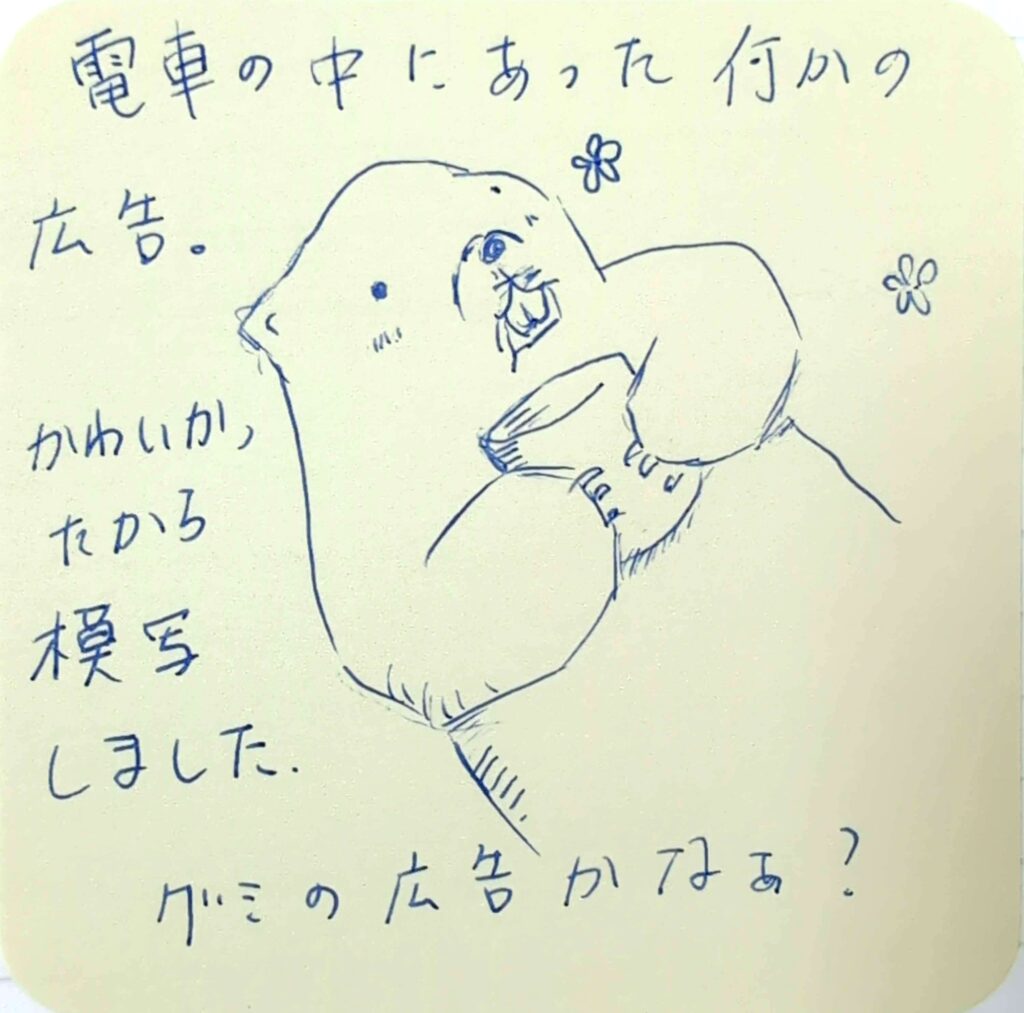 電車の中にあった何かの
広告。
かわいかっ
たから
模写
しました.
グミの広告かなぁ?